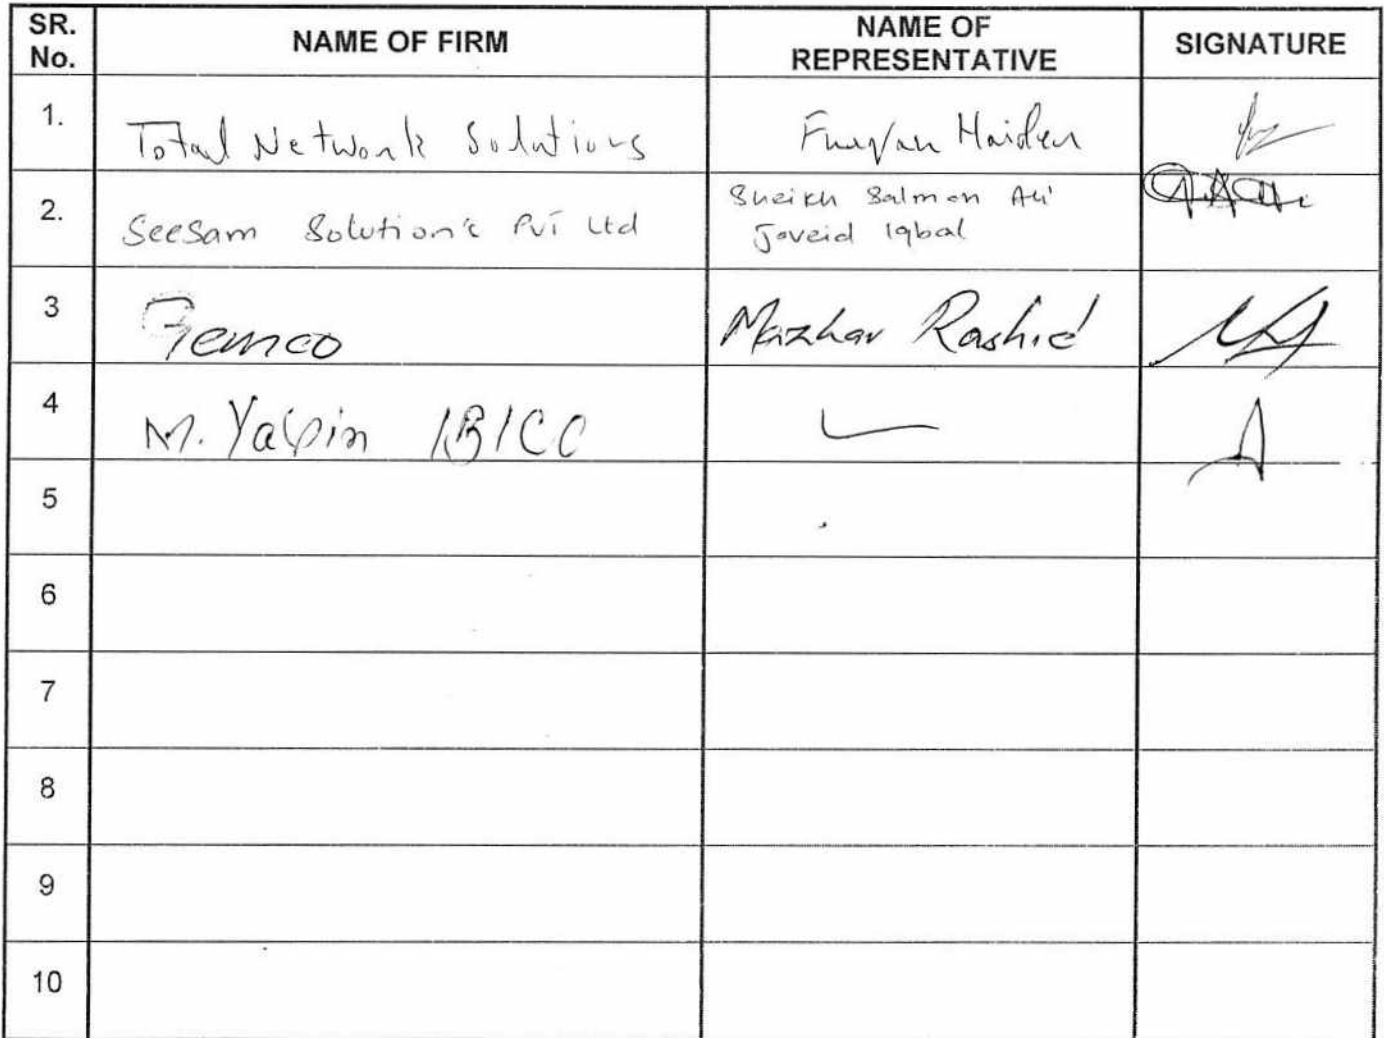 SR. No. NAME OF FIRM NAME OF REPRESENTATIVE SIGNATURE
1. Total Network Solutions Furqan Haider
2. SeeSam Solution's Pvt Ltd Sheikh Salman Ali
Javeid Iqbal
3 Mazhar Rashid
4 M. IBICC
5
6
7
8
9
10